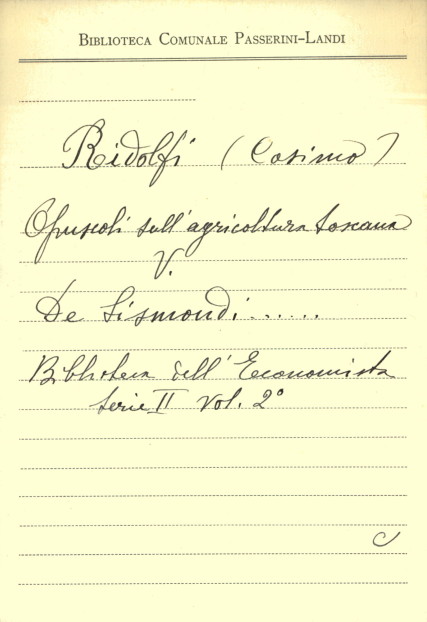 BIBLIOTECA COMUNALE PASSERINI-LANDI
Ridolfi (Cosimo)
Opuscoli sull'agricoltura toscana
V.
De Sismondi......
Biblioteca dell'Economista
Serie II Vol. 2°
C